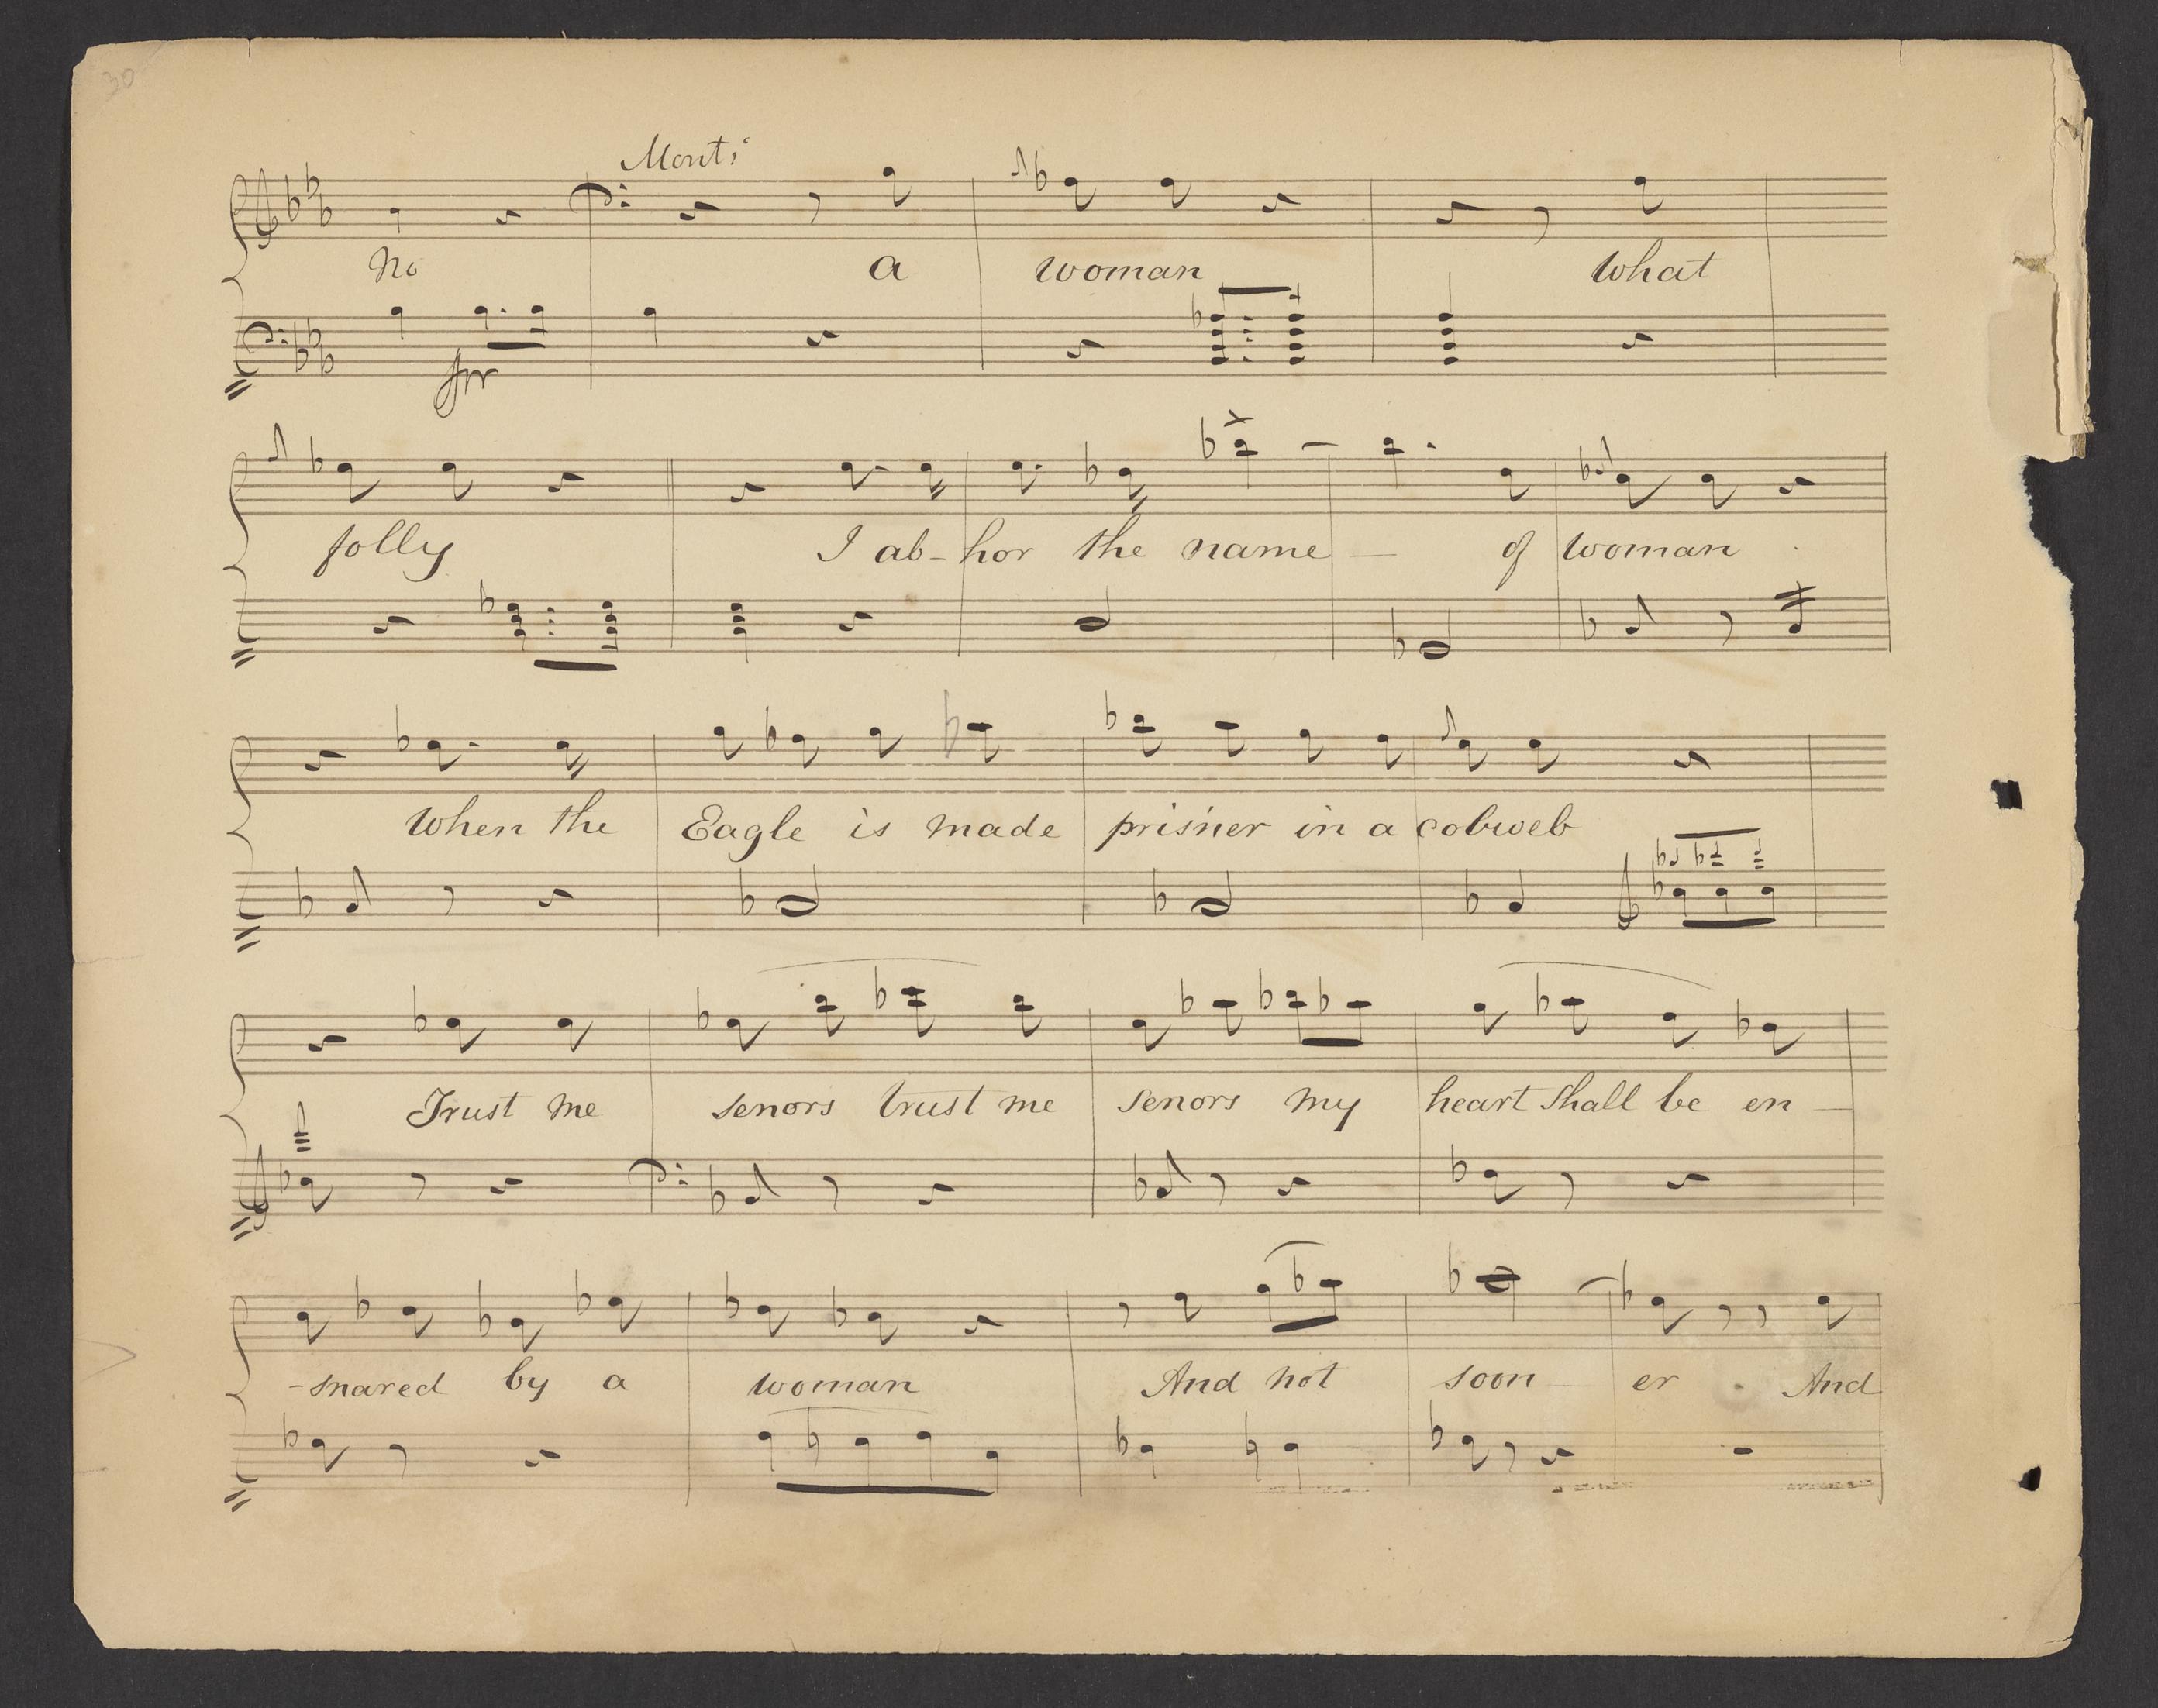 30
Mont:
No a woman what
folly I ab- hor the name — of woman .
When the Eagle is made pris'ner in a cobweb
Trust me senors trust me senors my heart shall be en —
-snared by a woman And not soon er . And